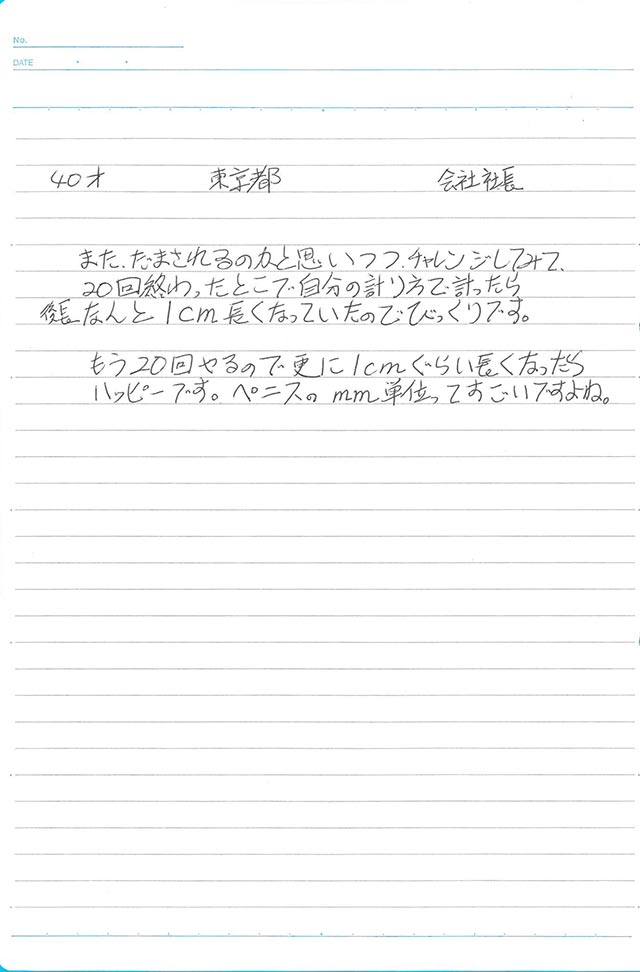 No.
DATE
40才 東京都 会社社長
また、だまされるのかと思いつつ、チャレンジしてみて、
20回終わったところで自分の計り方で計ったら
後長なんと1cm長くなっていたのでびっくりです。
もう20回やるので更に1cmぐらい長くなったら
ハッピーです。ペニスのmm単位ってすごいですよね。